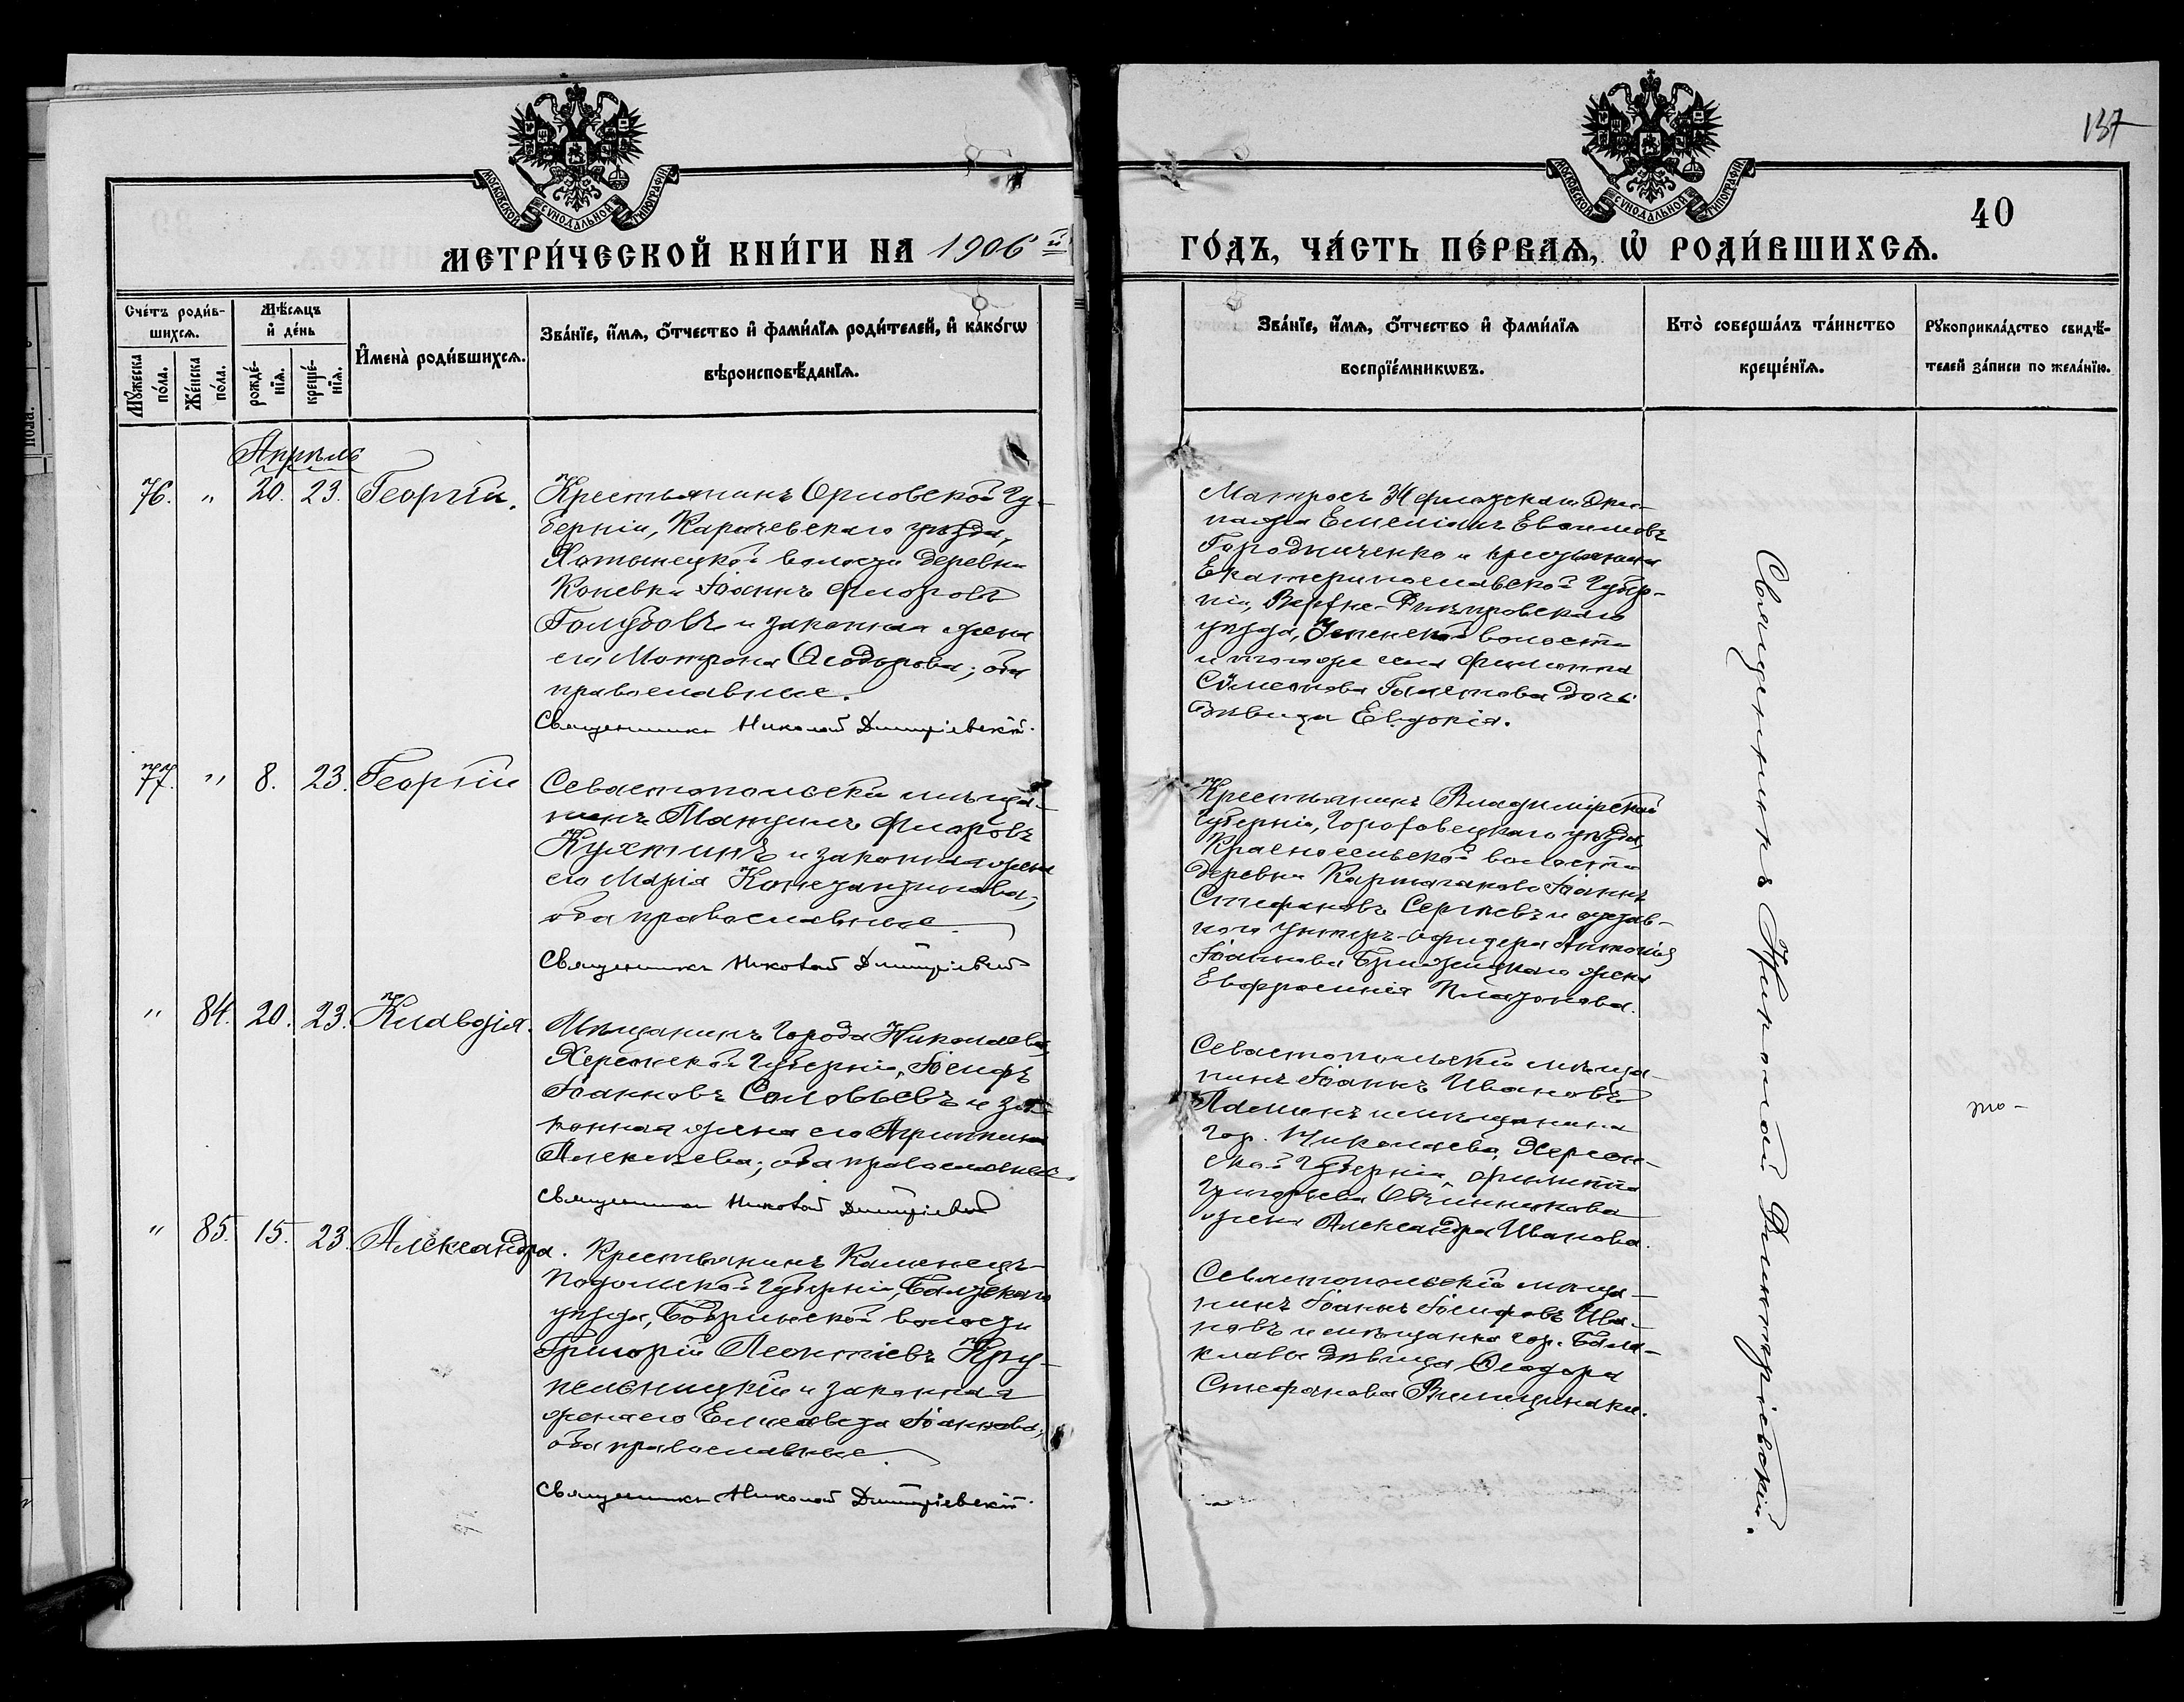 137
МОСКОВСКОЙ СѴНОДАЛЬНОЙ ТИПОГРАФІИ
МОСКОВСКОЙ СѴНОДАЛЬНОЙ ТИПОГРАФІИ
40
МЕТРИ́ЧЕСКОЙ КНИ́ГИ НА 1906й
ГО́ДЪ, ЧА́СТЬ ПЕ́РВАѦ, Ѡ҆ РОДИ́ВШИХСѦ.
Сче́тъ роди́в-
шихсѧ.
Мꙋ́жеска по́ла.
Же́нска по́ла.
Мѣ́сѧцъ
и҆ де́нь
рожде́-
нїѧ.
креще́-
нїѧ.
И҆мена̀ роди́вшихсѧ.
Зва́нїе, и҆́мѧ, ѻ҆́тчество и҆ фамилїѧ роди́телей, и҆ како́гѡ
вѣроисповѣ́данїѧ.
Зва́нїе, и҆́мѧ, ѻ҆́тчество и҆ фами́лїѧ
воспрїе́мникѡвъ.
Кто̀ соверша́лъ та́инство
креще́нїѧ.
Рꙋкоприкла́дство свидѣ́-
телей за́писи по жела́нїю.
Апрѣль
76. " 20. 23. Георгій.
Крестьянинъ Орловской Гу-
берніи, Карачевскаго уѣзда,
Хотынецкой волости деревни
Коневки Іоаннъ Флоровъ
Голубовъ и законная жена
его Матрона Ѳеодорова; оба
православные.
Священникъ Николай Димитріевскій.
Матросъ 34 флотскаго Эки-
пажа Емеліанъ Евѳимовъ
Городниченко и крестьянина
Екатеринославской Губер-
ніи, Верхне-Днѣпровскаго
уѣзда, волости
и того же села Филиппа
Сѵмеонова дочь
дѣвица Евдокія.
77. " 8. 23. Георгій
Севастопольскій мѣща-
нинъ Флоровъ
Кухтинъ и законная жена
его Марія Константинова;
оба православные.
Священникъ Николай Димитріевскій
Крестьянинъ Владимірской
Губерніи, Гороховецкаго уѣзда,
Красносельской волости
деревни Іоаннъ
Стефановъ Сергѣевъ и отстав-
ного унтеръ-офицера Антонія
Іоаннова жена
Евфросинія Платонова.
" 84. 20. 23. Клавдія.
Мѣщанинъ Города Николаева,
Херсонской Губерніи, Іосифъ
Іоанновъ Соловьевъ и за-
конная жена его Агриппина
Алексѣева; оба православные.
Священникъ Николай Димитріевскій
Севастопольскій мѣща-
нинъ Іоаннъ Ивановъ
и мѣщанина
гор. Николаева, Херсон-
ской Губерніи, Филиппа
Григорьева Овчинникова
жена Александра Иванова.
" 85. 15. 23. Александра.
Крестьянинъ Каменецъ-
Подольской Губерніи, Балтскаго
уѣзда, волости
Григорій Леонтіевъ Кру-
пельницкій и законная
жена его Елисавета Іоаннова;
оба православные.
Священникъ Николай Димитріевскій.
Севастопольскій мѣща-
нинъ Іоаннъ Іосифовъ Ива-
новъ и мѣщанка гор. Бала-
клавы дѣвица Ѳеодора
Стефанова
Священникъ Николай Димитріевскій.